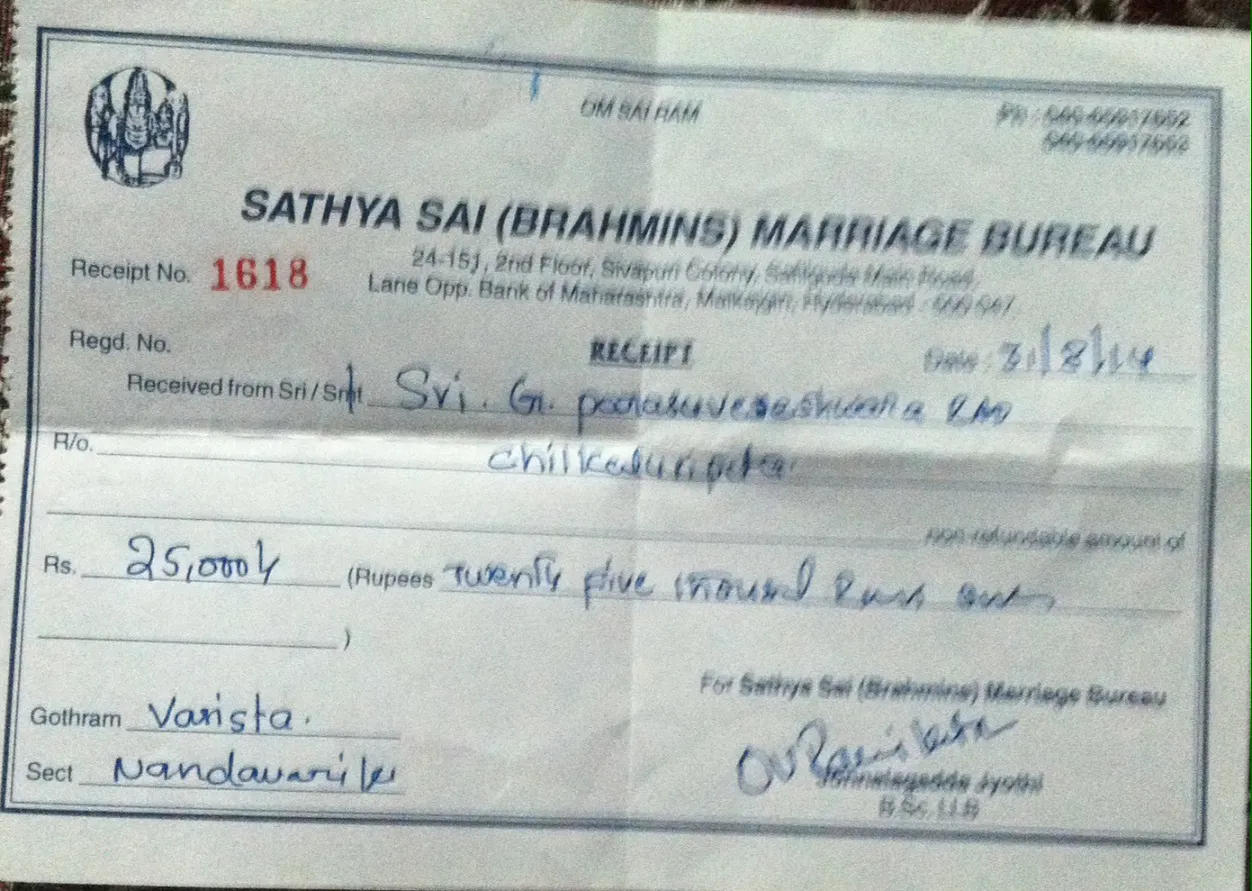 OM SAI RAM
Ph :
SATHYA SAI (BRAHMINS) MARRIAGE BUREAU
24-151, 2nd Floor, Sivapuri Colony, Safilguda Main Road,
Lane Opp. Bank of Maharashtra, Malkajgiri, Hyderabad -
Receipt No. 1618
Regd. No.
RECEIPT
Date : 31/8/14
Received from Sri / Smt Sri. G.
R/o.
non refundable amount of
Rs. 25,000/- (Rupees Twenty five thousand
)
For Sathya Sai (Brahmins) Marriage Bureau
Gothram Varista.
Sect Nandavariku
Jyothi
B.Sc, LLB